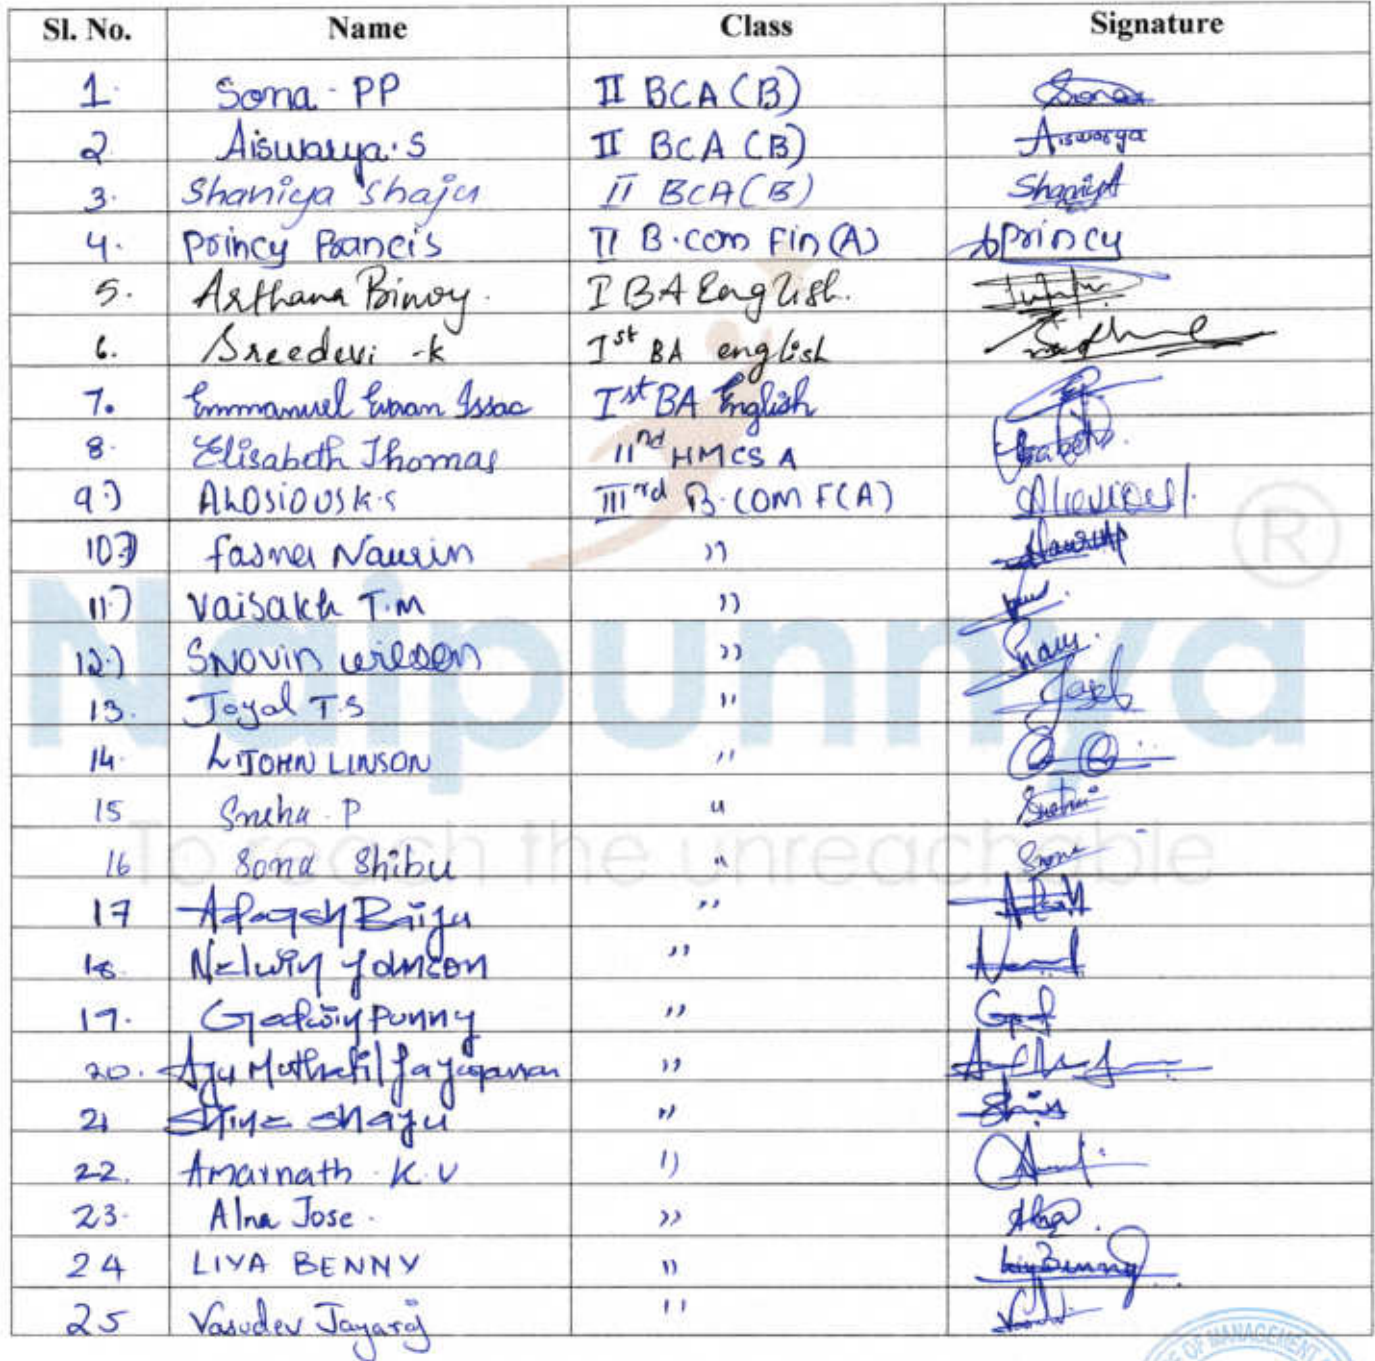 Sl. No. Name Class Signature
1. Sona - PP II BCA (B) Sona
2. Aiswarya. S II BCA (B) Aiswarya
3. Shaniya Shaju II BCA (B) Shaniya
4. Princy Francis II B.com Fin (A) Princy
5. Arthana Binoy. I BA English.
6. Sreedevi - K 1st BA english
7. Emmanuel Evaan Issac Ist BA English
8. Elisabeth Thomas IInd HMCS A
9.) ALOSIOUS K.S IIIrd B.COM F(A)
10.) Fasna Naurin ,, Naurin
11.) Vaisakh T.M ,,
12.) SNOVIN wilson ,,
13. Joyal T.S ,,
14. LIJOHN LINSON ,,
15 Sneha. P ,,
16 Sona Shibu ,, Sona
17 Baiju ,,
18. Nelwin Johnson ,,
19. Godwin Punny ,,
20. Aju ,,
21 Shine Shaju ,,
22. Amarnath. K.V ,,
23. Alna Jose. ,, Alna.
24 LIYA BENNY ,, Liya Benny
25 Vasudev Jayaraj ,,
Naipunnya ®
To reach the unreachable
OF MANAGEMENT